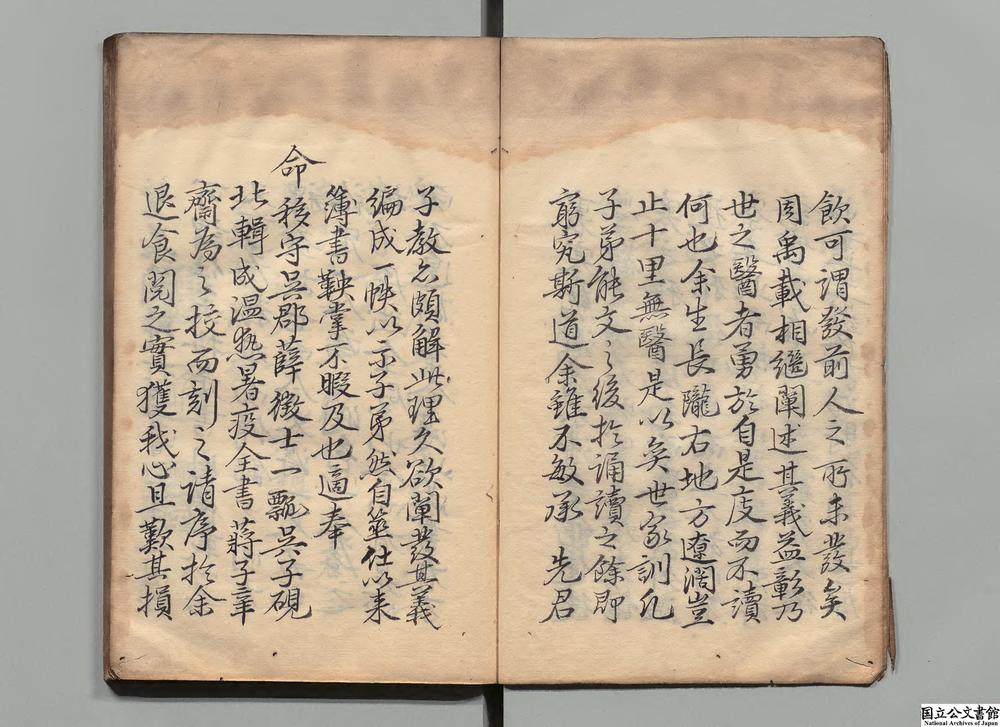 飲可謂發前人之所未發矣
周禹載相繼闡述其義益彰乃
世之醫者勇於自是廢而不讀
何也余生長隴右地方遼濶豈
止十里無醫是以矣世家訓凡
子弟能文之後於誦讀之餘即
窮究斯道余雖不敏承 先君
子教亦頗解此理久欲闡發其義
編成一帙以示子弟然自筮仕以来
簿書鞅掌不暇及也適奉
命移守吳郡薛徵士一瓢吳子硯
北輯成溫熱暑疫全書蔣子葦
齋為之挍而刻之請序於余
退食閱之實獲我心且歎其損
国立公文書館
National Archives of Japan